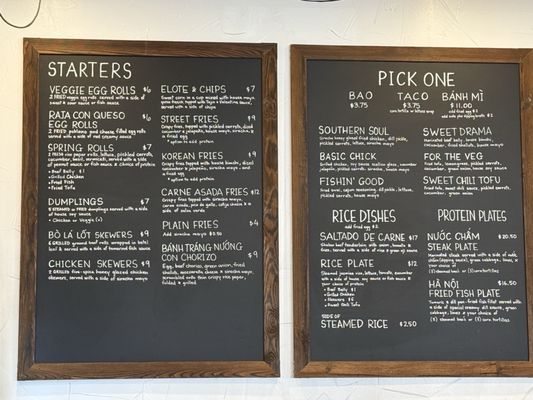 STARTERS
VEGGIE EGG ROLLS $6
2 FRIED veggie egg rolls served with a side of
sweet & sour sauce or fish sauce
RAJA CON QUESO
EGG ROLLS $6
2 FRIED poblano and cheese filled egg rolls
served with a side of
SPRING ROLLS $7
2 FRESH rice paper rolls, lettuce, pickled carrots,
cucumber, basil, vermicelli, served with a side
of peanut sauce or fish sauce & choice of protein
• Beef Bulgogi $1
• Grilled Chicken
• Fried Fish
• Fried Tofu
DUMPLINGS $7
5 STEAMED or FRIED dumplings served with a side
of house soy sauce
• Chicken or Veggie (v)
BÒ LÁ LỐT SKEWERS $9
4 GRILLED ground beef wrapped in betel
leaf & served with a side of fermented fish sauce
CHICKEN SKEWERS $9
2 GRILLED five-spice honey glazed chicken
skewers, served with a side of sriracha mayo
ELOTE & CHIPS $7
Sweet corn in a cup mixed with house mayo,
served with a side of chips
STREET FRIES $9
Crispy fries, topped with pickled carrots, diced
cucumber & jalapeño, house mayo, sriracha, &
a fried egg
* option to add protein
KOREAN FRIES $9
Crispy fries topped with house kimchi, diced
cucumber & jalapeño, sriracha mayo and
a fried egg
* option to add protein
CARNE ASADA FRIES $12
Crispy fries topped with sriracha mayo,
carne asada, pico de gallo, cotija cheese & a
side of salsa verde
PLAIN FRIES $4
Add sriracha mayo $0.50
BÁNH TRÁNG NƯỚNG
CON CHORIZO $9
Egg, beef chorizo, green onion, fried
shallots, mozzarella cheese & sriracha mayo,
scrambled onto thin crispy rice paper,
folded & grilled
PICK ONE
BAO TACO BÁNH MÌ
$3.75 $3.75 $11.00
corn tortilla or lettuce wrap add fried egg $2
SOUTHERN SOUL
Sriracha honey glazed fried chicken, dill pickle,
pickled carrots, lettuce, sriracha mayo
BASIC CHICK
Grilled chicken, soy sauce scallion glaze, cucumber
jalapeño, pickled carrots, sriracha house mayo
FISHIN' GOOD
Fried swai, cajun seasoning, dill pickle, lettuce,
pickled carrots, house mayo
SWEET DRAMA
Marinated beef belly, house kimchi,
cucumber, fried shallots, house mayo
FOR THE VEG
Fried tofu, lemongrass, pickled carrots,
cucumber, green onion, house soy sauce
SWEET CHILI TOFU
Fried tofu, sweet chili sauce, pickled carrots,
cucumber, green onion
RICE DISHES
add fried egg $2
SALTADO DE CARNE $17
Shaken beef tenderloin with onion, tomato &
fries. served with a side of rice & green of sauce
RICE PLATE $12
Steamed jasmine rice, lettuce, tomato, cucumber
with a side of house soy sauce or fish sauce &
your choice of protein
• Beef Bulgogi $1
• Grilled Chicken
• Skewers $6
• Sweet Chili Tofu
SIDE OF
STEAMED RICE $2.50
PROTEIN PLATES
NƯỚC CHẤM $20.50
STEAK PLATE
Marinated steak served with a side of nước
chấm dipping sauce, green cabbage, limes &
your choice of
(3) steamed baos or (3) corn tortillas
HÀ NỘI $16.50
FRIED FISH PLATE
Turmeric & dill pan-fried fish fillet served with
a side of special creamy dill sauce, green
cabbage, limes & your choice of
(3) steamed baos or (3) corn tortillas